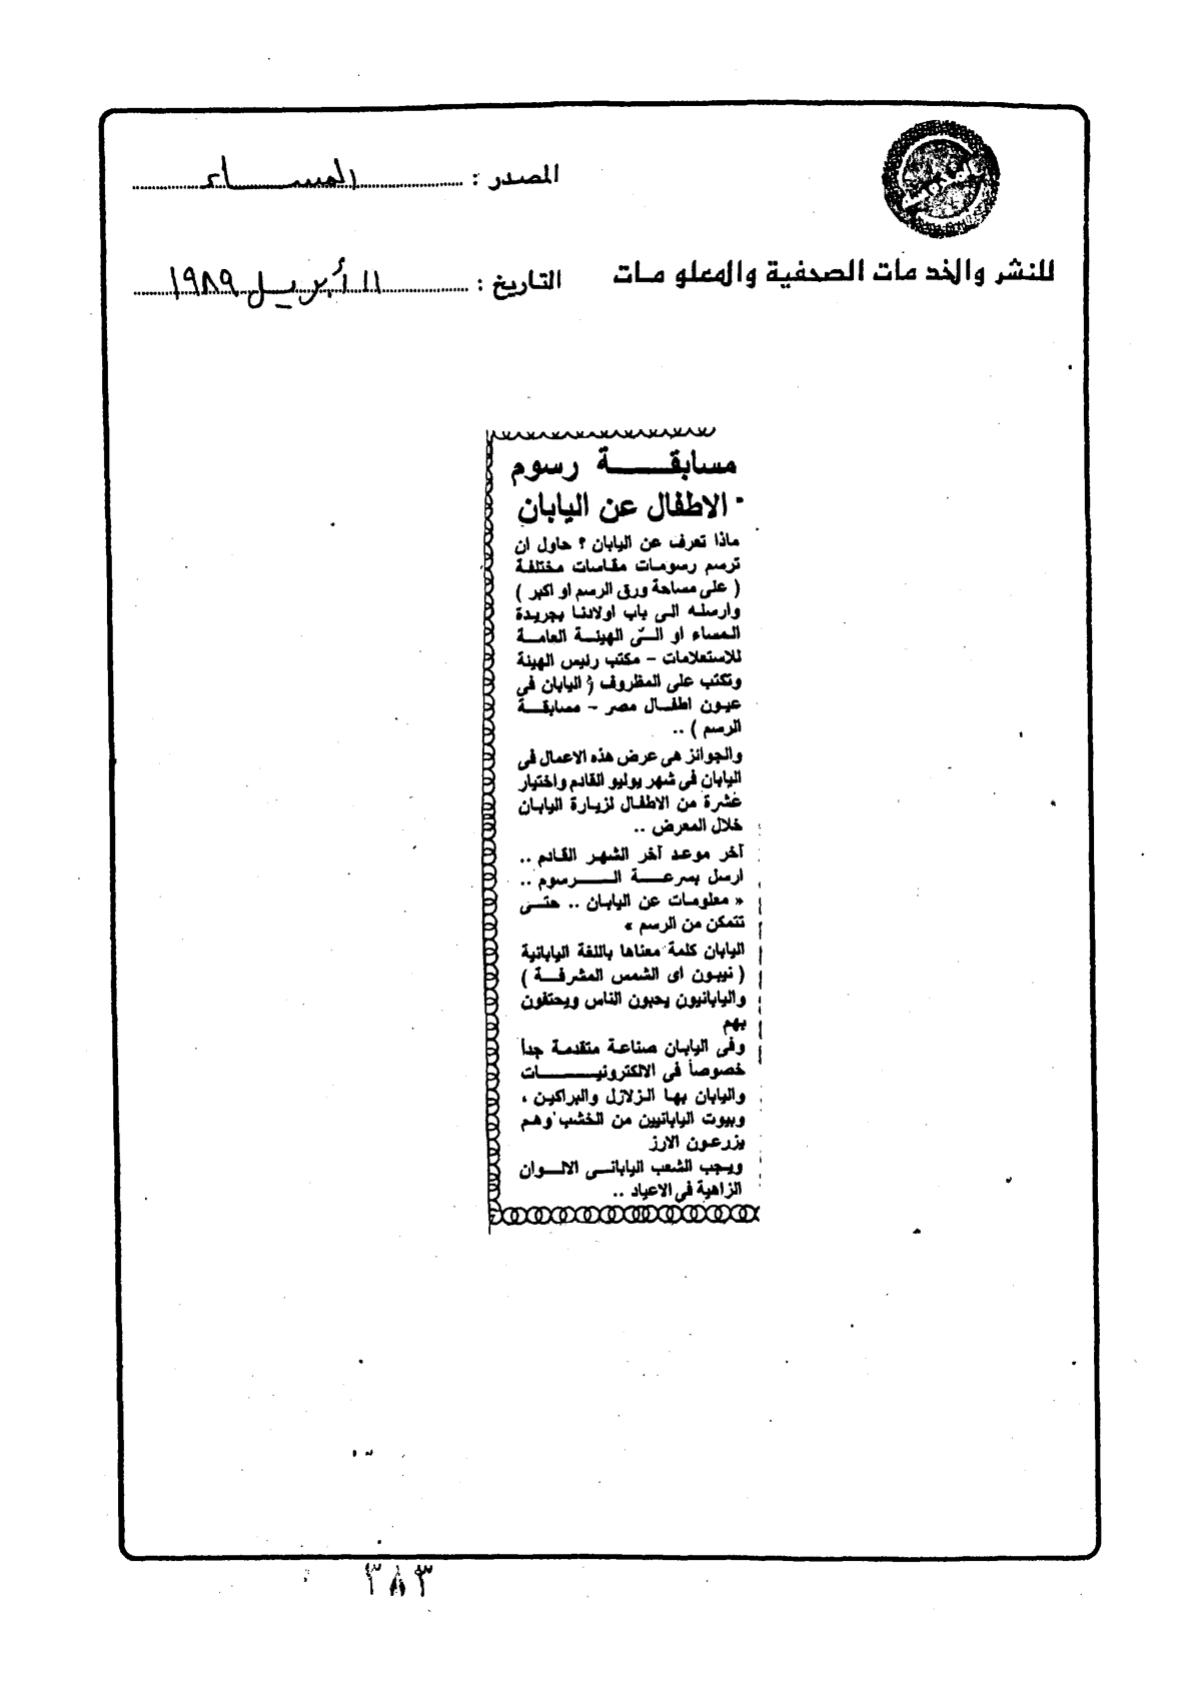 المصدر : المساء
للنشر والخدمات الصحفية والمعلومات
التاريخ : ١١ أبريل ١٩٨٩
مسابقة رسوم
الاطفال عن اليابان
ماذا تعرف عن اليابان ؟ حاول ان
ترسم رسومات مقاسات مختلفة
( على مساحة ورق الرسم او اكبر )
وارسله الى باب اولادنا بجريدة
المساء او الى الهيئة العامة
للاستعلامات - مكتب رئيس الهيئة
وتكتب على المظروف ( اليابان فى
عيون اطفال مصر - مسابقة
الرسم ) ..
والجوائز هى عرض هذه الاعمال فى
اليابان فى شهر يوليو القادم واختيار
عشرة من الاطفال لزيارة اليابان
خلال المعرض ..
آخر موعد آخر الشهر القادم ..
ارسل بسرعة الرسوم ..
« معلومات عن اليابان .. حتى
تتمكن من الرسم »
اليابان كلمة معناها باللغة اليابانية
( نيبون اى الشمس المشرفة )
واليابانيون يحبون الناس ويحتفون
بهم
وفى اليابان صناعة متقدمة جداً
خصوصاً فى الالكترونيات
واليابان بها الزلازل والبراكين ،
وبيوت اليابانيين من الخشب وهم
يزرعون الارز
ويجب الشعب اليابانى الالوان
الزاهية فى الاعياد ..
٣٨٣